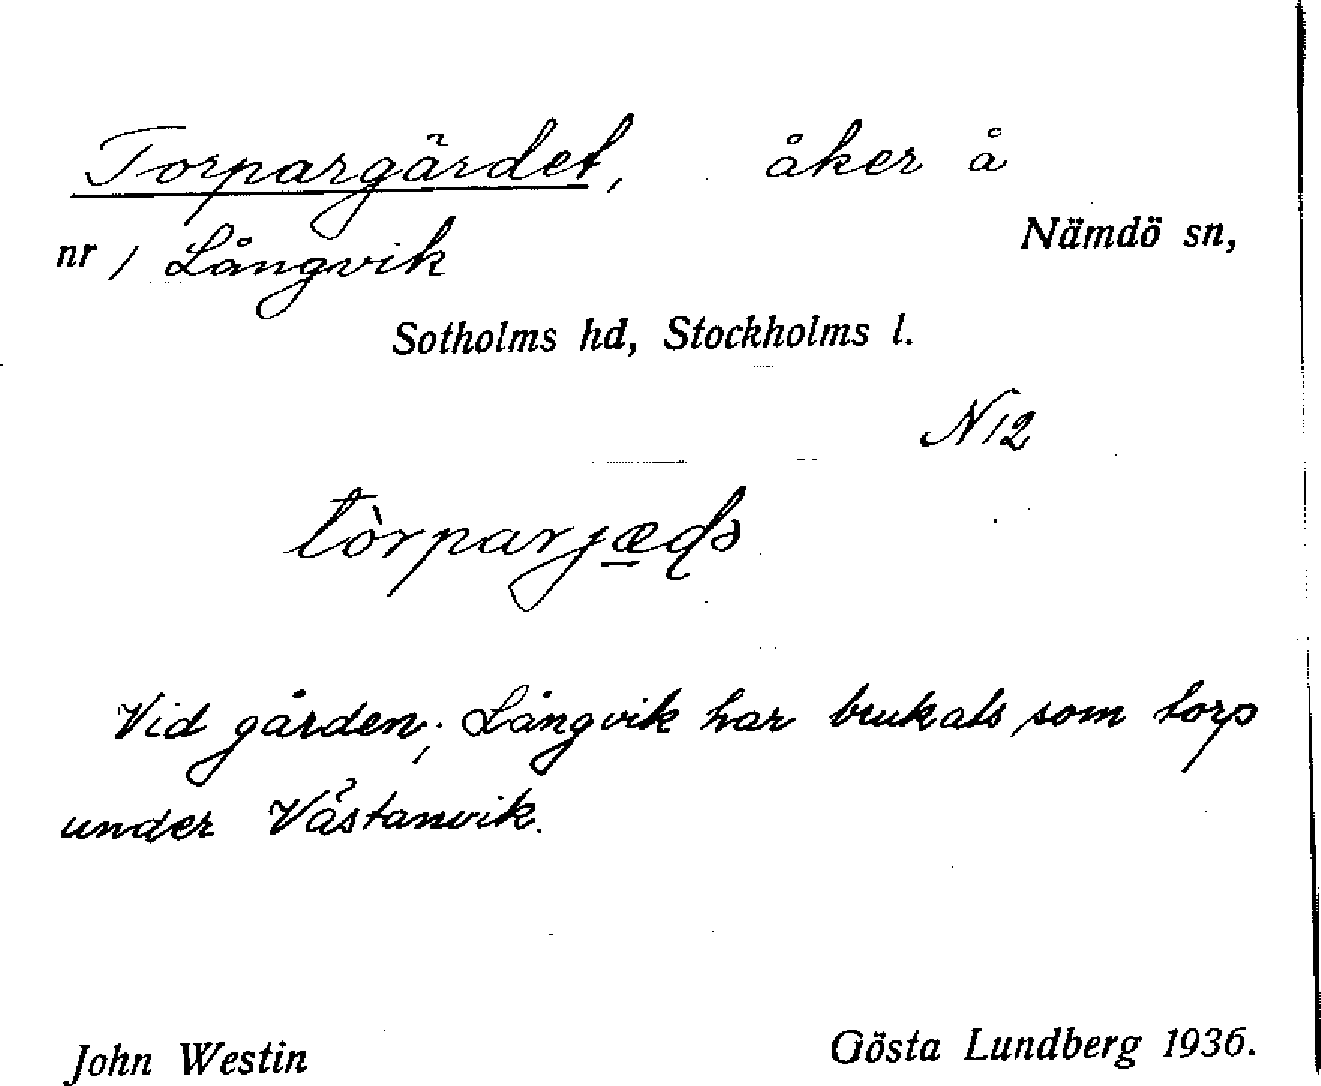 Torpargärdet, åker å
nr 1 Långvik Nämdö sn,
Sotholms hd, Stockholms l.
N 12
Vid gården; Långvik har brukats som torp
under Västanvik.
John Westin Gösta Lundberg 1936.